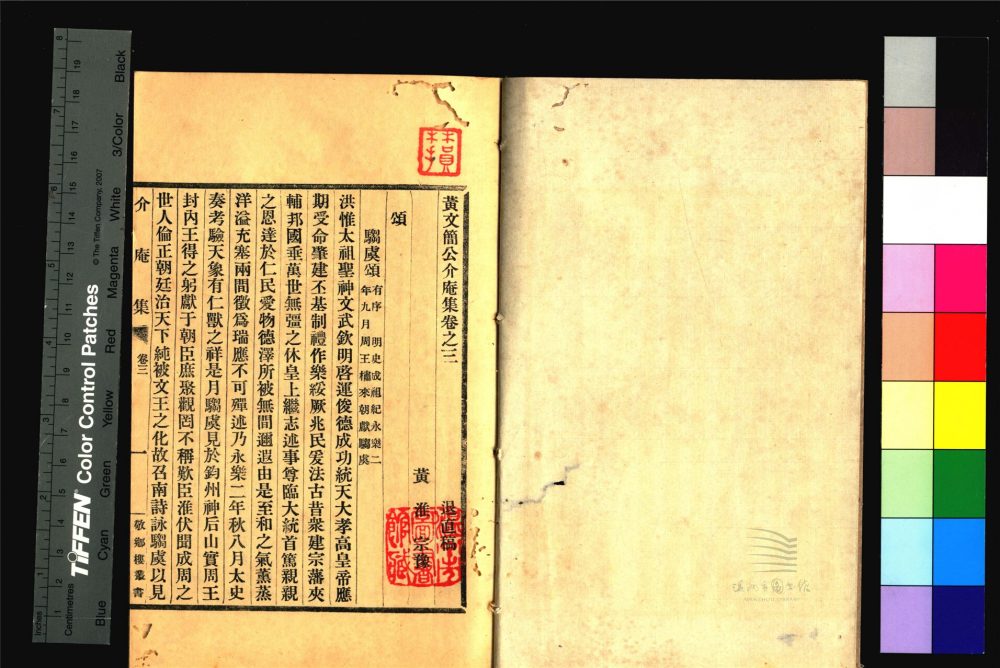 黃文簡公介庵集卷之三
退直稿
黃淮宗豫
頌
騶虞頌 有序 明史成祖紀永樂二年九月周王橚來朝獻騶虞
洪惟太祖聖神文武欽明啓運俊德成功統天大孝高皇帝應
期受命肇建丕基制禮作樂綏厥兆民爰法古昔衆建宗藩夾
輔邦國垂萬世無彊之休皇上繼志述事尊臨大統首篤親親
之恩達於仁民愛物德澤所被無間邇遐由是至和之氣薰蒸
洋溢充塞兩間徵爲瑞應不可殫述乃永樂二年秋八月太史
奏考驗天象有仁獸之祥是月騶虞見於鈞州神后山實周王
封內王得之躬獻于朝臣庶聚觀罔不稱歎臣淮伏聞成周之
世人倫正朝廷治天下純被文王之化故召南詩詠騶虞以見
介庵集
卷三
一
敬鄉樓叢書
Inches
Centimetres
TIFFEN Color Control Patches
© The Tiffen Company, 2007
Blue
Cyan
Green
Yellow
Red
Magenta
White
3/Color
Black